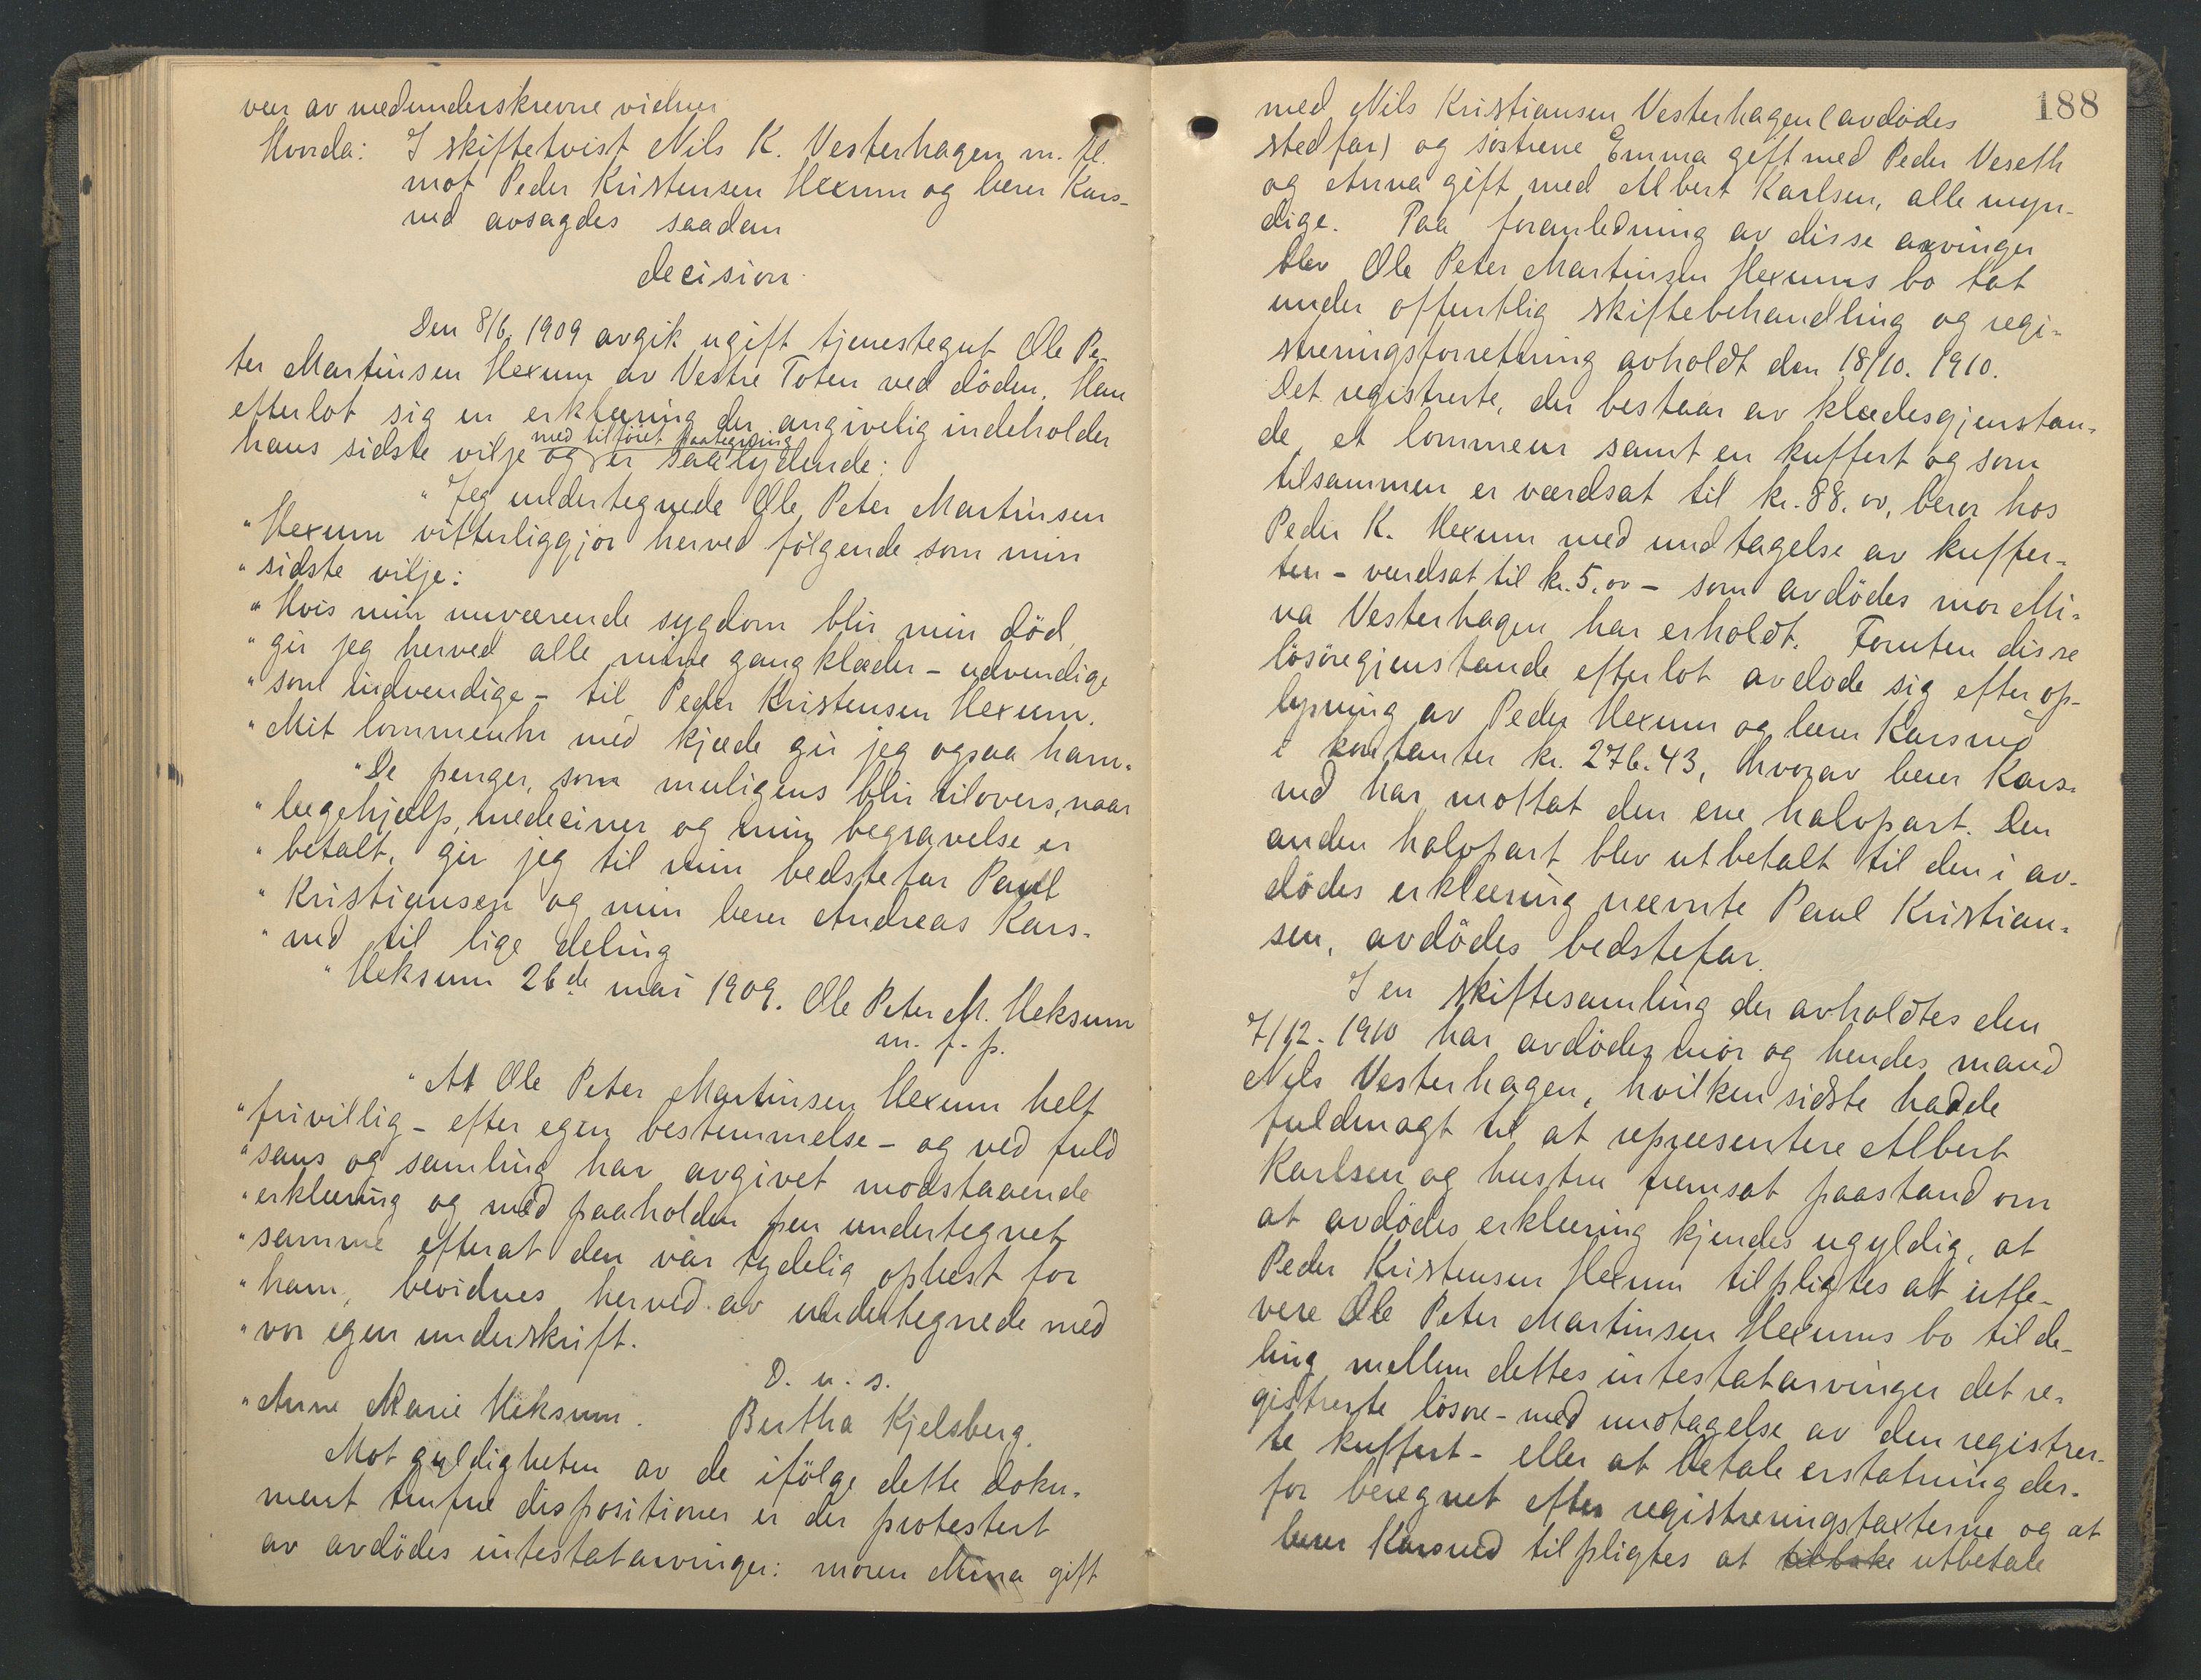 vær av medunderskrevne vidner
Hvorda: I skiftetvist Nils K. Vesterhagen m. fl.
mot Peder Kristensen Hexum og lærer Kars-
rud avsagdes saadan
decision.
Den 8/6 1909 avgik ugift tjenestegut Ole Pe-
ter Martinsen Hexum av Vestre Toten ved döden. Han
efterlot sig en erklæring der angivelig indeholder
med tilföiet paategning
hans sidste vilje og er saalydende:
"Jeg undertegnede Ole Peter Martinsen
"Hexum vitterliggjör herved fölgende som min
"sidste vilje:
"Hvis min nuværende sygdom blir min död,
"gir jeg herved alle mine gangklæder - udvendige
"som indvendige - til Peder Kristensen Hexum.
"Mit lommeuhr med kjæde gir jeg ogsaa ham.
"De penger, som muligens blir tilovers, naar
"lægehjælp, mediciner og min begravelse er
"betalt, gir jeg til min bedstefar Paul
"Kristiansen og min lærer Andreas Kars-
"rud til lige deling
"Heksum 26de mai 1909. Ole Peter M. Heksum
m. f. p.
"At Ole Peter Martinsen Hexum helt
"frivillig - efter egen bestemmelse - og ved fuld
"sans og samling har avgivet modstaaende
"erklæring og med paaholden pen undertegnet
"samme efterat den var tydelig oplæst for
"ham, bevidnes herved av undertegnede med
"vor egen underskrift.
D. u. s.
"Anne Marie Heksum. Bertha Kjelsberg.
Mot gyldigheten av de ifölge dette doku-
ment trufne dispositioner er der protestert
av avdödes intestatarvinger: moren Mina gift
188
med Nils Kristiansen Vesterhagen (avdödes
stedfar) og söstrene Emma gift med Peder Veseth
og Anna gift med Albert Karlsen, alle myn-
dige. Paa foranledning av disse arvinger
blev Ole Peter Martinsen Hexums bo tat
under offentlig skiftebehandling og regi-
streringsforretning avholdt den 18/10. 1910.
Det registrerte, der bestaar av klædesgjenstan-
de, et lommeur samt en kuffert og som
tilsammen er værdsat til kr. 88.00, beror hos
Peder K. Hexum med undtagelse av kuffer-
ten - værdsat til kr. 5.00 - som avdödes mor Mi-
na Vesterhagen har erholdt. Foruten disse
lösöregjenstande efterlot avdöde sig efter op-
lysning av Peder Hexum og lærer Karsrud
i kontanter kr. 276.43, hvorav lærer Kars-
rud har mottat den ene halvpart. Den
anden halvpart blev utbetalt til den i av-
dödes erklæring nævnte Paul Kristian-
sen, avdödes bedstefar.
I en skiftesamling der avholdtes den
7/12. 1910 har avdödes mor og hendes mand
Nils Vesterhagen, hvilken sidste hadde
fuldmagt til at repræsentere Albert
Karlsen og hustru fremsat paastand om
at avdödes erklæring kjendes ugyldig, at
Peder Kristensen Hexum tilpligtes at utle-
vere Ole Peter Martinsen Hexums bo til de-
ling mellem dettes intestatarvinger det re-
gistrerte lösöre - med undtagelse av den registrer-
te kuffert - eller at betale erstatning der-
for beregnet efter registreringstaxterne og at
lærer Karsrud tilpligtes at tilbake utbetale